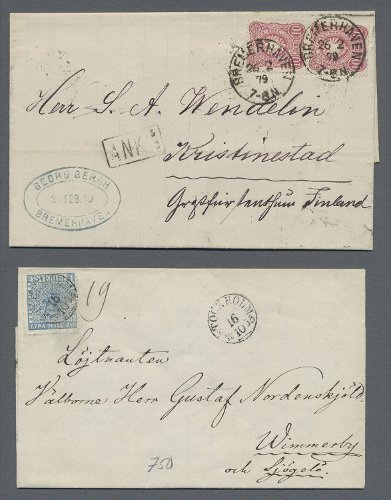 BREMERHAVEN
26 2
79
7-8N
BREMERHAVEN
26 2
79
7-8N
10
Herr S. A. Wendelin
ANK
Kristinestad
Großfürstenthum Finland
GEORG BERGH
FEB.
BREMERHAVEN
SVERIGE
FYRA SKILL
19
STOCKHOLM
16
10
Löjtnanten
Välborne Herr Gustaf Nordenskjöld
Wimmerby
och Sjögelö.
750